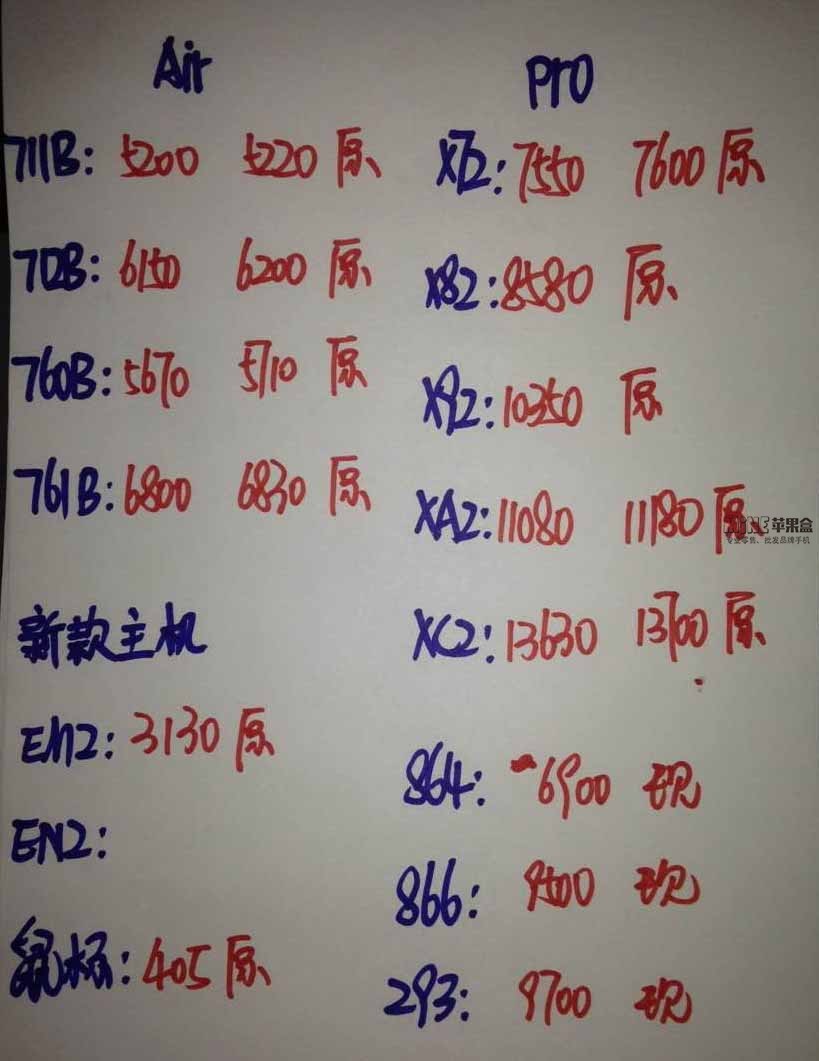 Air
711B: 5200 5220 原
712B: 6150 6200 原
760B: 5670 5710 原
761B: 6800 6830 原
新款主机
EM2: 3130 原
EN2:
鼠标: 405 原
Pro
X72: 7550 7600 原
X82: 8580 原
X92: 10350 原
XA2: 11080 11180 原
XC2: 13630 13700 原
864: 6900 现
866: 9500 现
293: 9700 现
苹果盒
专业零售、批发品牌手机